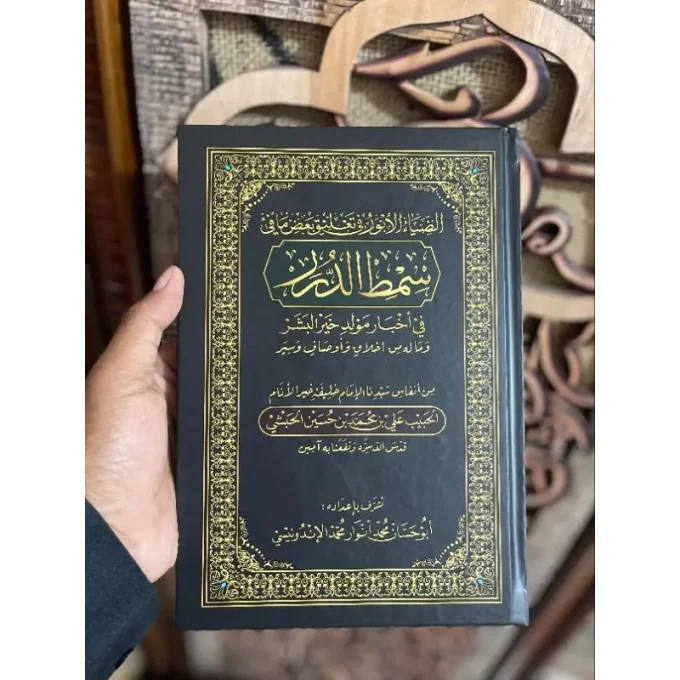 الضياء الأنور في تعليق بعض ما في
سمط الدرر
في أخبار مولد خير البشر
وما له من أخلاق وأوصاف وسير
من أنفاس سيدنا الإمام خليفة خير الأنام
الحبيب علي بن محمد بن حسين الحبشي
قدس الله سره ونفعنا به آمين
تشرف بإعداده :
أبو حسان محمد أنوار محمد الإندونيسي